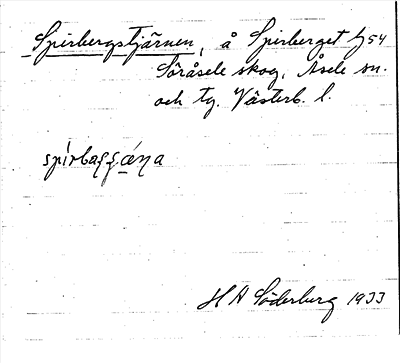 Spirbergstjärnen, å Spirberget
Söråsele skog, Åsele sn.
och tg. Västerb. l.
H A Söderberg 1933